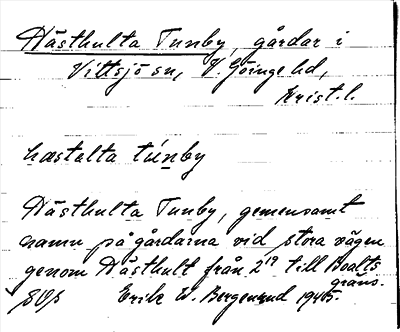 Hästhulta Tunby, gårdar i
Vittsjö sn, V. Göinge hd,
Krist. l.
hæstalta túnby
Hästhulta Tunby, gemensamt
namn på gårdarna vid stora vägen
genom Hästhult från 2¹⁹ till Boalts
gräns.
Erik W. Bergenrud 1945.